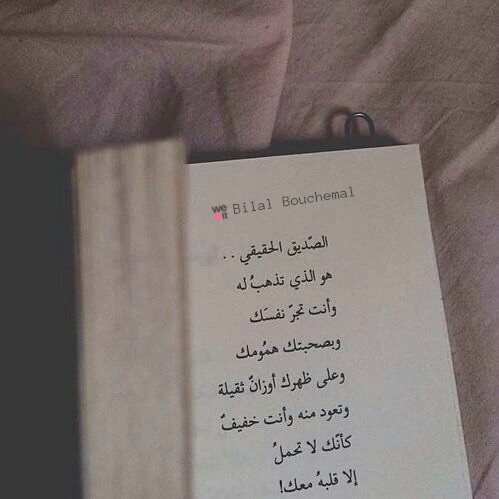 we
it
Bilal Bouchemal
الصّديق الحقيقي . .
هو الذي تذهبُ له
وأنت تجرّ نفسَك
وبصحبتك همُومك
وعلى ظهرك أوزانٌ ثقيلة
وتعود منه وأنت خفيفٌ
كأنّك لا تحملُ
إلا قلبهُ معك!